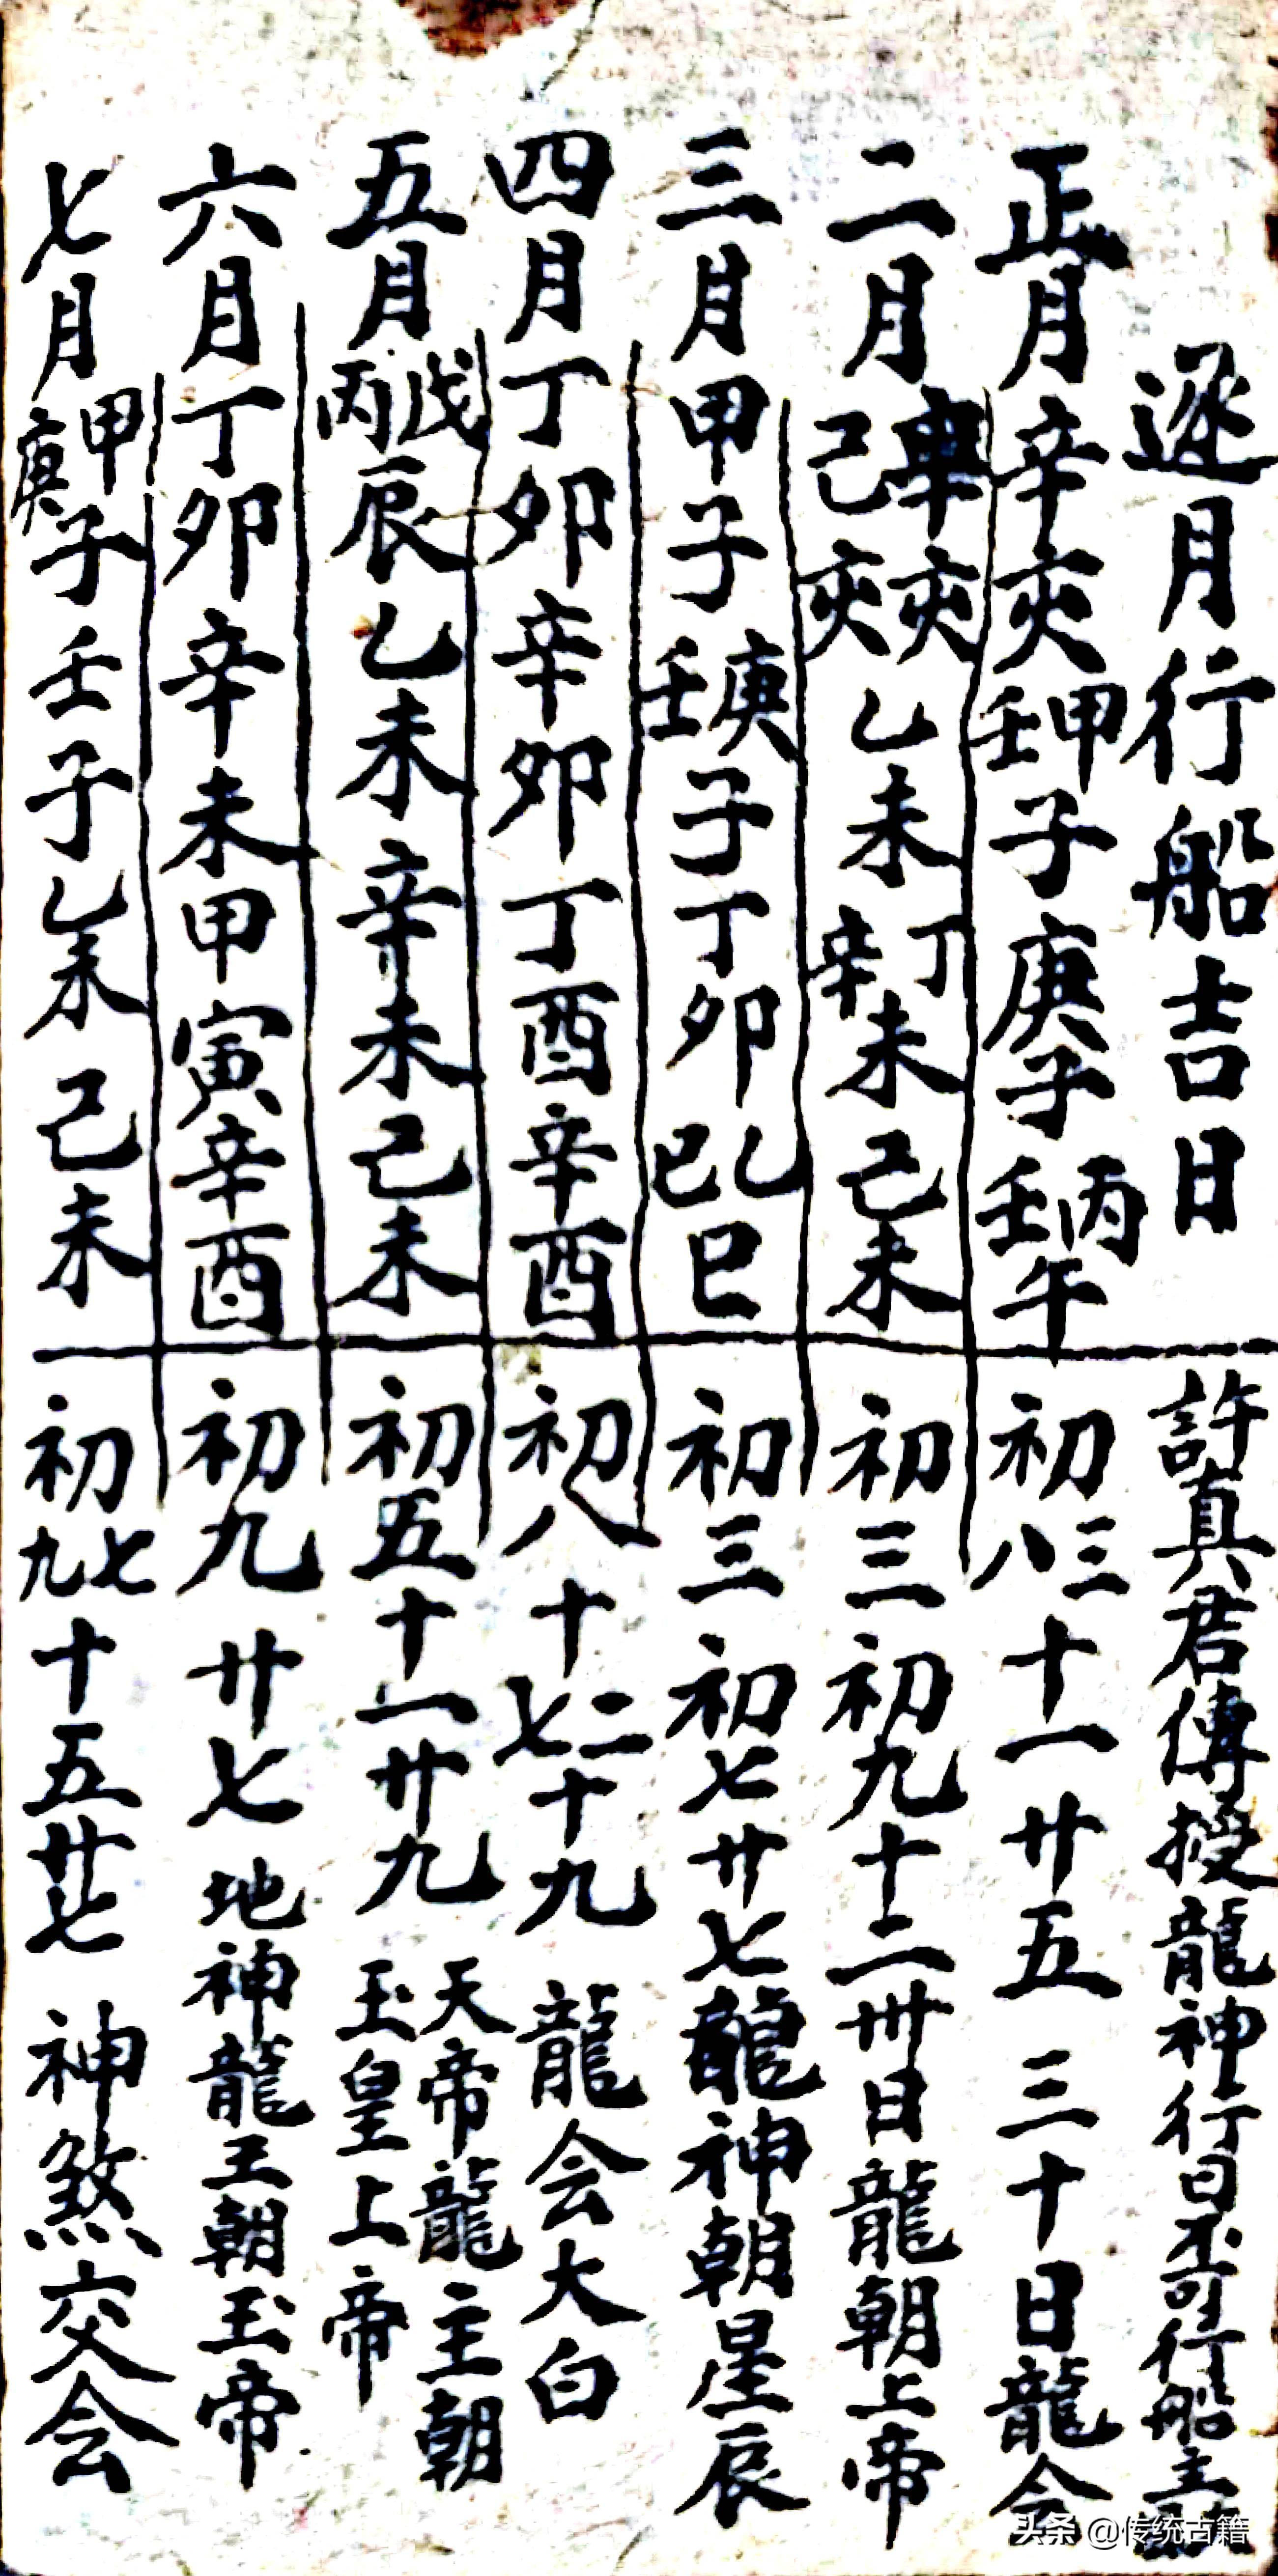 逐月行船吉日
許真君傳授龍神行日不可行船主
正月辛亥甲壬子庚子丙壬午
初三八十一廿五三十日龍会
二月辛亥己亥乙未丁辛未己未
初三初九十二卅日龍朝上帝
三月甲子庚壬子丁卯乙己巳
初三初七廿七龍神朝星辰
四月丁卯辛卯丁酉辛酉
初八十二七十九龍会大白
五月戊丙辰乙未辛未己未
初五十一廿九天帝龍主朝玉皇上帝
六月丁卯辛未甲寅辛酉
初九廿七地神龍王朝玉帝
七月甲庚子壬子乙未己未
初七九十五廿七神煞交会
头条 @传统古籍